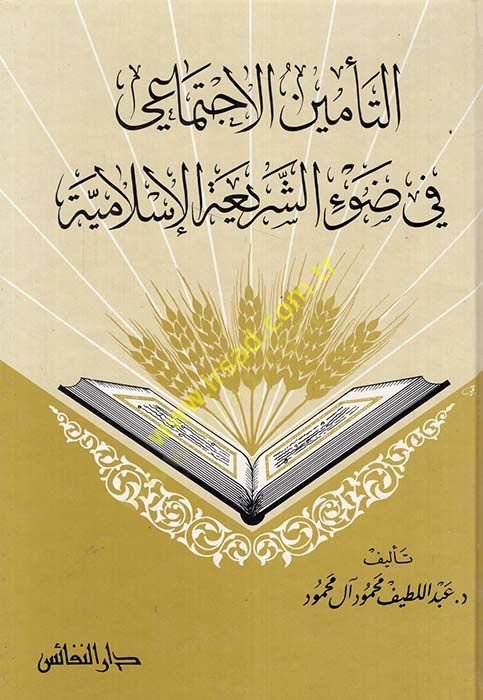 التأمين الاجتماعي
في ضوء الشريعة الإسلامية
www.wsad.com.tr
تأليف
د. عبد اللطيف محمود آل محمود
دار النفائس